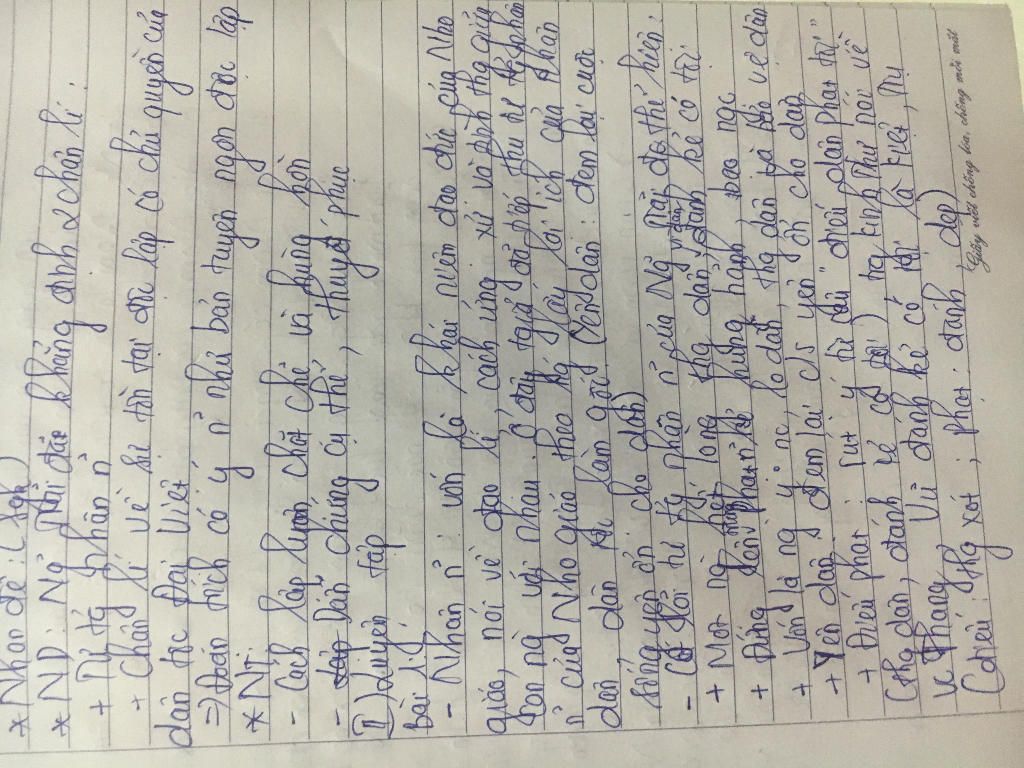 * Nhan đề: (
* ND: Ng Trãi đã khẳng định 2 chân lí:
+ Tư tg nhân n
+ Chân lí về sự tồn tại độc lập có chủ quyền của
dân tộc Đại Việt
=> Đoạn trích có ý n như bản tuyên ngôn độc lập
* NT:
- Cách lập luận chặt chẽ và hùng hồn
- Dẫn chứng cụ thể, thuyết phục
II) Luyện tập
Bài 1:
- Nhân n: vốn là khái niệm đạo đức của Nho
giáo, nói về đạo lí, cách ứng xử và tình thg giữa
con ng với nhau. Ở đây tgiả đã tiếp thu tư tg nhân
n của Nho giáo theo hg lấy lợi ích của nhân
dân, dân làm gốc (Yên dân: đem lại cuộc
sống yên ổn cho dân)
- Cốt lõi tư tg nhân n của Ng Trãi đc thể hiện:
+ Một ng hết lòng thg dân vì dân, đánh kẻ có tội
+ Đứng trên n hung hãn, bạo ng
+ Vốn là ng y nc lo dân, thg dân và bảo vệ dân
+ Yên dân: đem lại c/s yên ổn cho dân
+ Điếu phạt: rút ý từ "điếu dân phạt tội"
(thg dân, đánh kẻ có tội) trg kinh Thư nói về
vc Thang, Vũ đánh kẻ có tội là Kiệt, Trụ
(điếu: thg xót; phạt: đánh, dẹp)
Giấy viết chống lóa, chống mỏi mắt